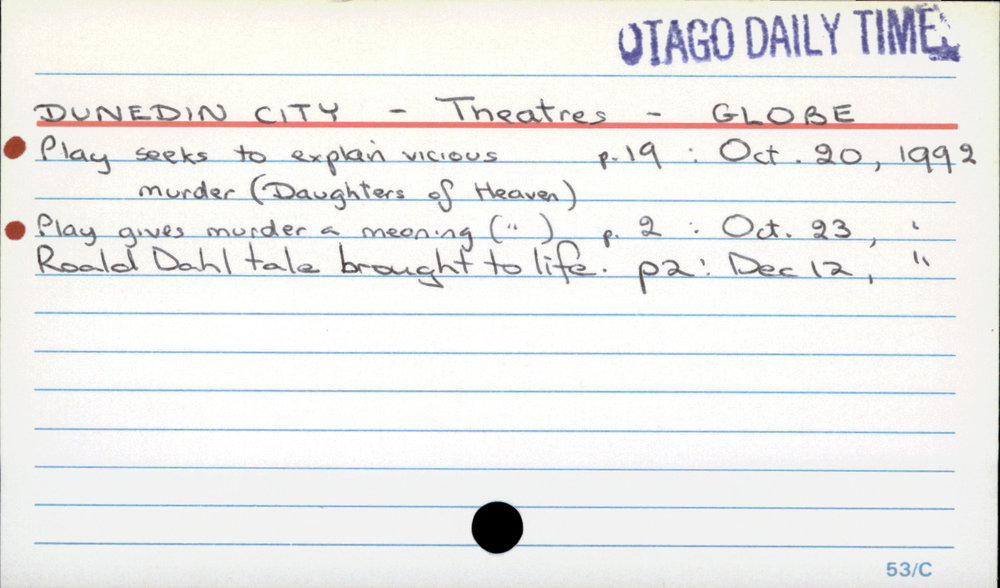 OTAGO DAILY TIMES
DUNEDIN CITY - Theatres - GLOBE
Play seeks to explain vicious p.19 : Oct. 20, 1992
murder (Daughters of Heaven)
Play gives murder a meaning (") p. 2 : Oct. 23, "
Roald Dahl tale brought to life. p2: Dec 12, "
53/C